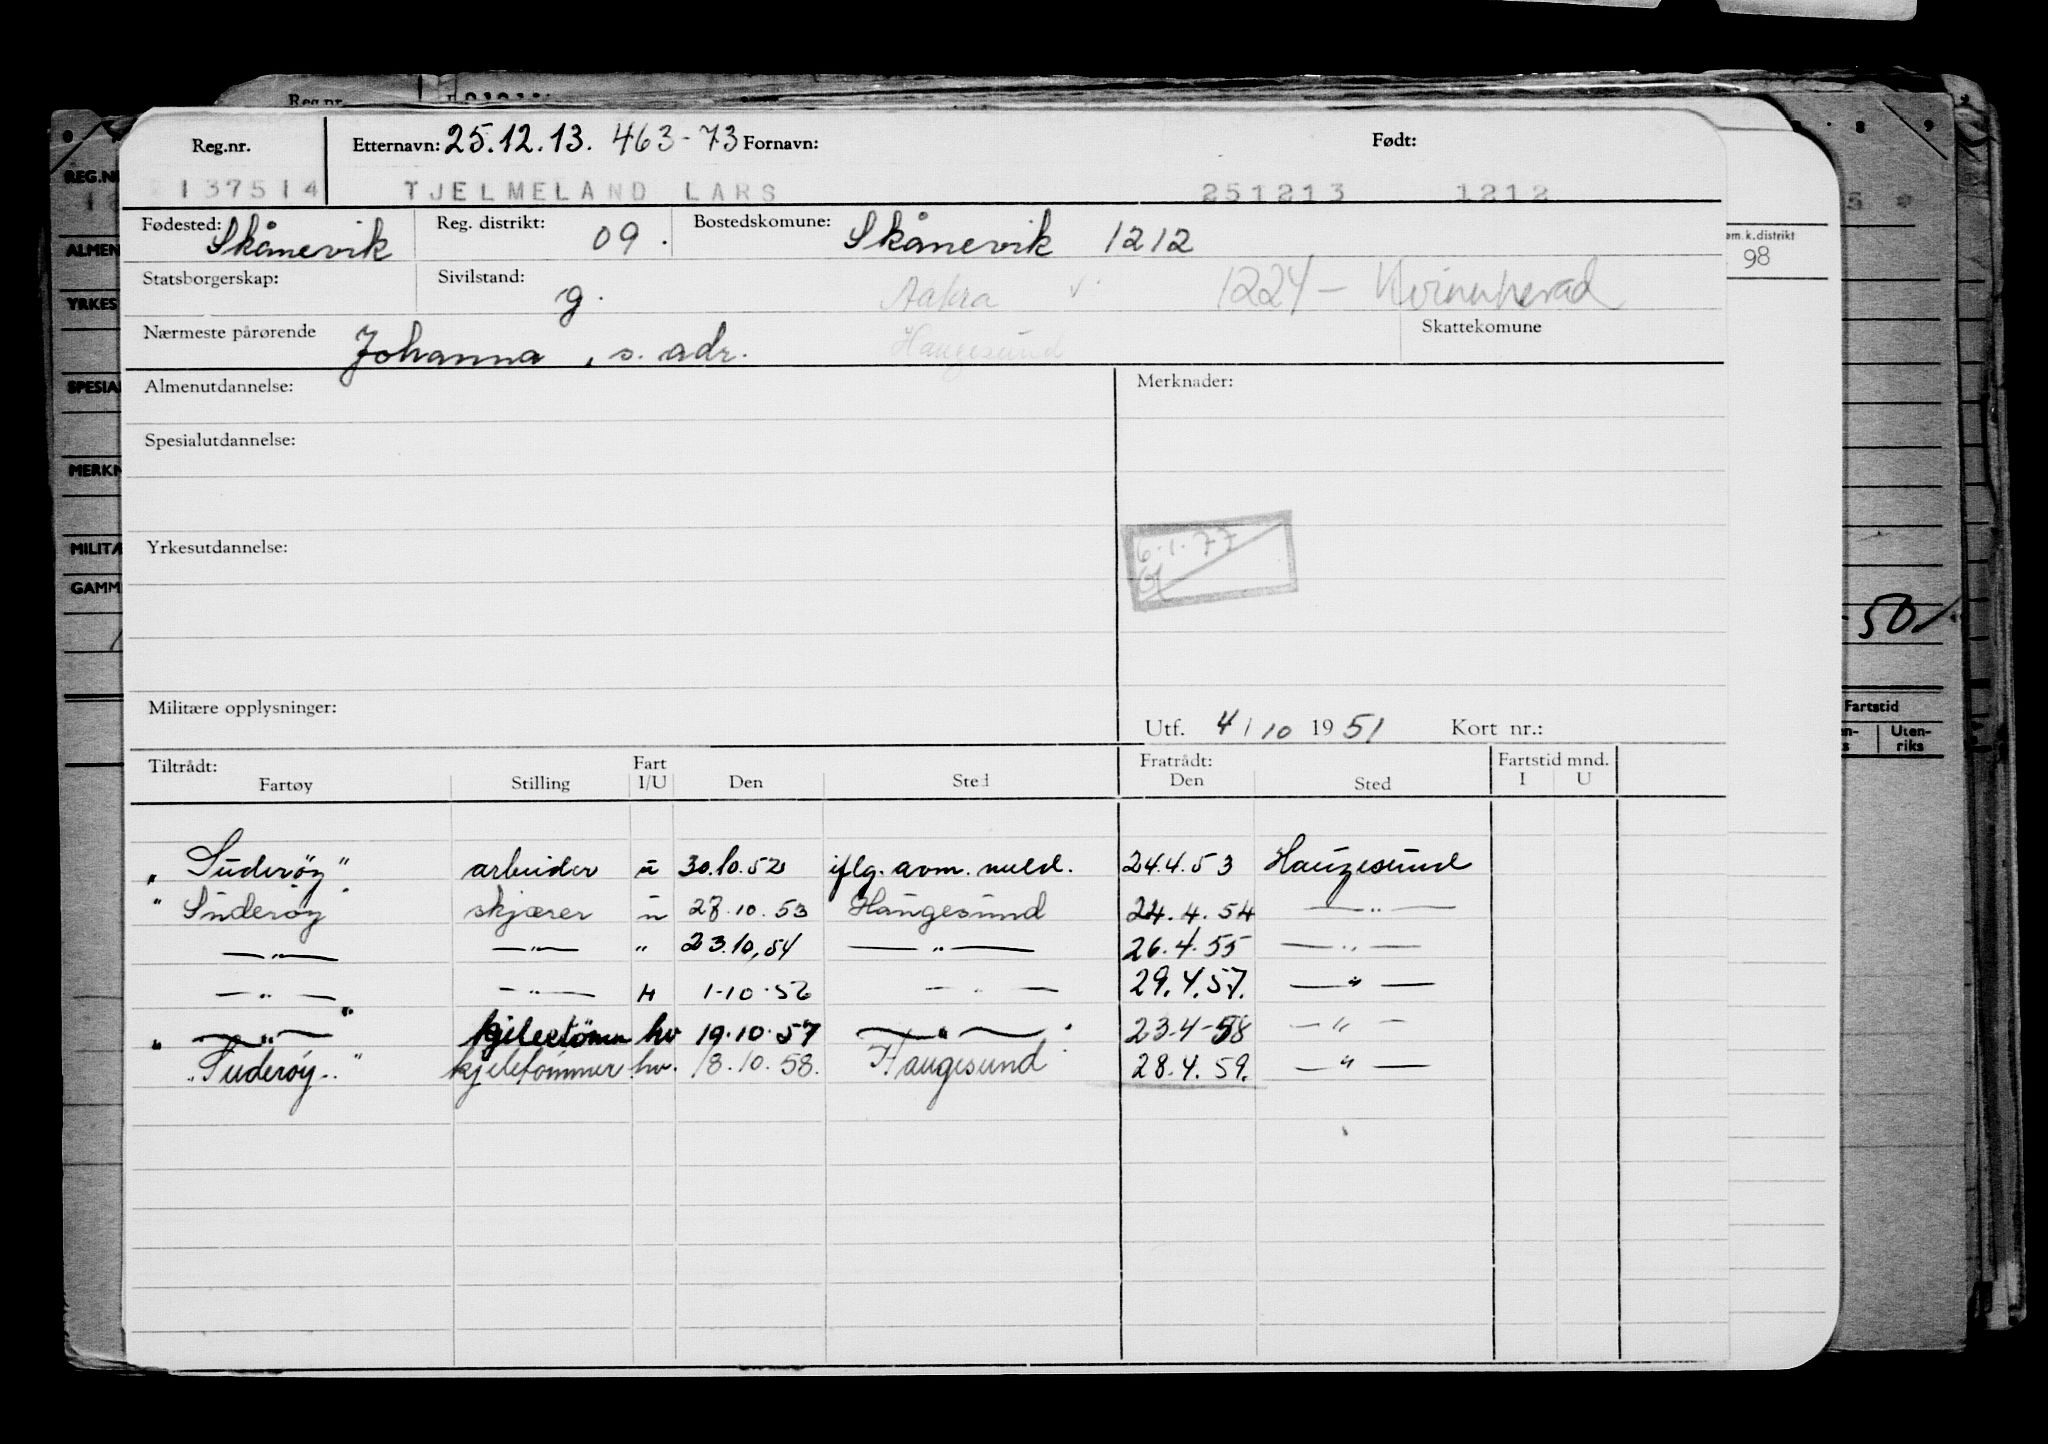 Reg.nr. Etternavn: 25.12.13. 463-73 Fornavn: Født:
137514 TJELMELAND LARS 251213 1212
Fødested: Skånevik Reg. distrikt: 09. Bostedskomune: Skånevik 1212
Statsborgerskap: Sivilstand: g. Aakra v. 1224 – Kvinnherad
Nærmeste pårørende Johanna, s. adr. Haugesund Skattekomune
Almenutdannelse: Merknader:
Spesialutdannelse:
6.1.77
Yrkesutdannelse:
Militære opplysninger: Utf. 4/10 1951 Kort nr.:
Tiltrådt: Fart Fratrådt: Fartstid mnd.
Fartøy Stilling I/U Den Sted Den Sted I U
"Suderøy" arbeider u 30.10.52 iflg. avm. meld. 24.4.53 Haugesund
"Suderøy" skjærer u 27.10.53 Haugesund 24.4.54 —"—
—"— —"— " 23.10.54 —"— 26.4.55 —"—
—"— —"— H 1-10-56 —"— 29.4.57. —"—
"—"—" kjeletømmer hv 19.10.57 —"— 23-4-58 —"—
"Suderøy" kjeletømmer hv. 18.10.58. Haugesund 28.4.59. —"—
REG.NR
ALMEN
YRKES
SPESIAL
MERKN
MILITÆ
GAMM
Reg.nr
k.distrikt
98
50
Fartstid
Uten-
riks